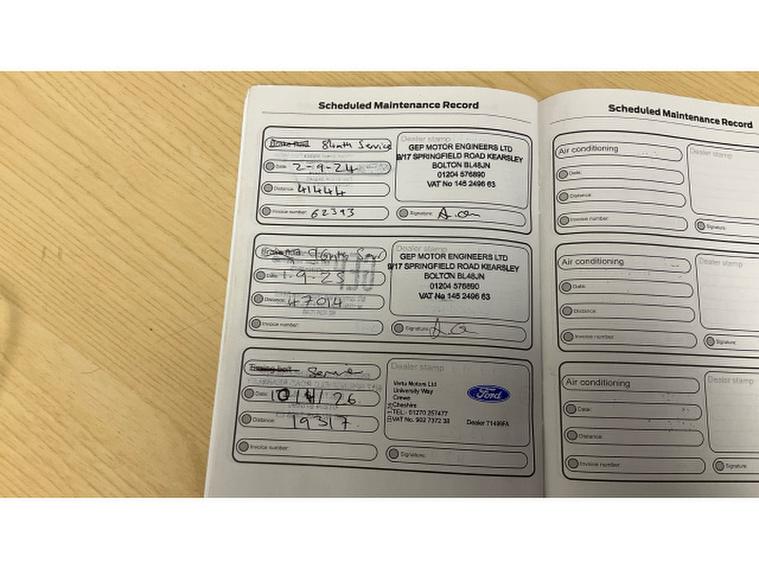 Scheduled Maintenance Record
84mth Service
Date: 2-9-24
Distance: 41444
Invoice number: 62393
Dealer stamp
GEP MOTOR ENGINEERS LTD
9/17 SPRINGFIELD ROAD KEARSLEY
BOLTON BL48JN
01204 576890
VAT No 145 2496 63
Signature:
Date: 1-9-25
Distance: 47014
Invoice number:
GEP MOTOR ENGINEERS LTD
9/17 SPRINGFIELD ROAD KEARSLEY
BOLTON BL48JN
01204 576890
VAT No 145 2496 63
Signature:
Timing belt Service
Date: 10/4/26
Distance:
Invoice number:
Dealer stamp
Vertu Motors Ltd
University Way
Crewe
Cheshire
TEL: 01270 257477
VAT No. 902 7372 38
Ford
Dealer 71499FA
Signature:
Scheduled Maintenance Record
Air conditioning
Date:
Distance:
Invoice number:
Dealer stamp
Signature:
Air conditioning
Date:
Distance:
Invoice number:
Dealer stamp
Signature:
Air conditioning
Date:
Distance:
Invoice number:
Dealer stamp
Signature: